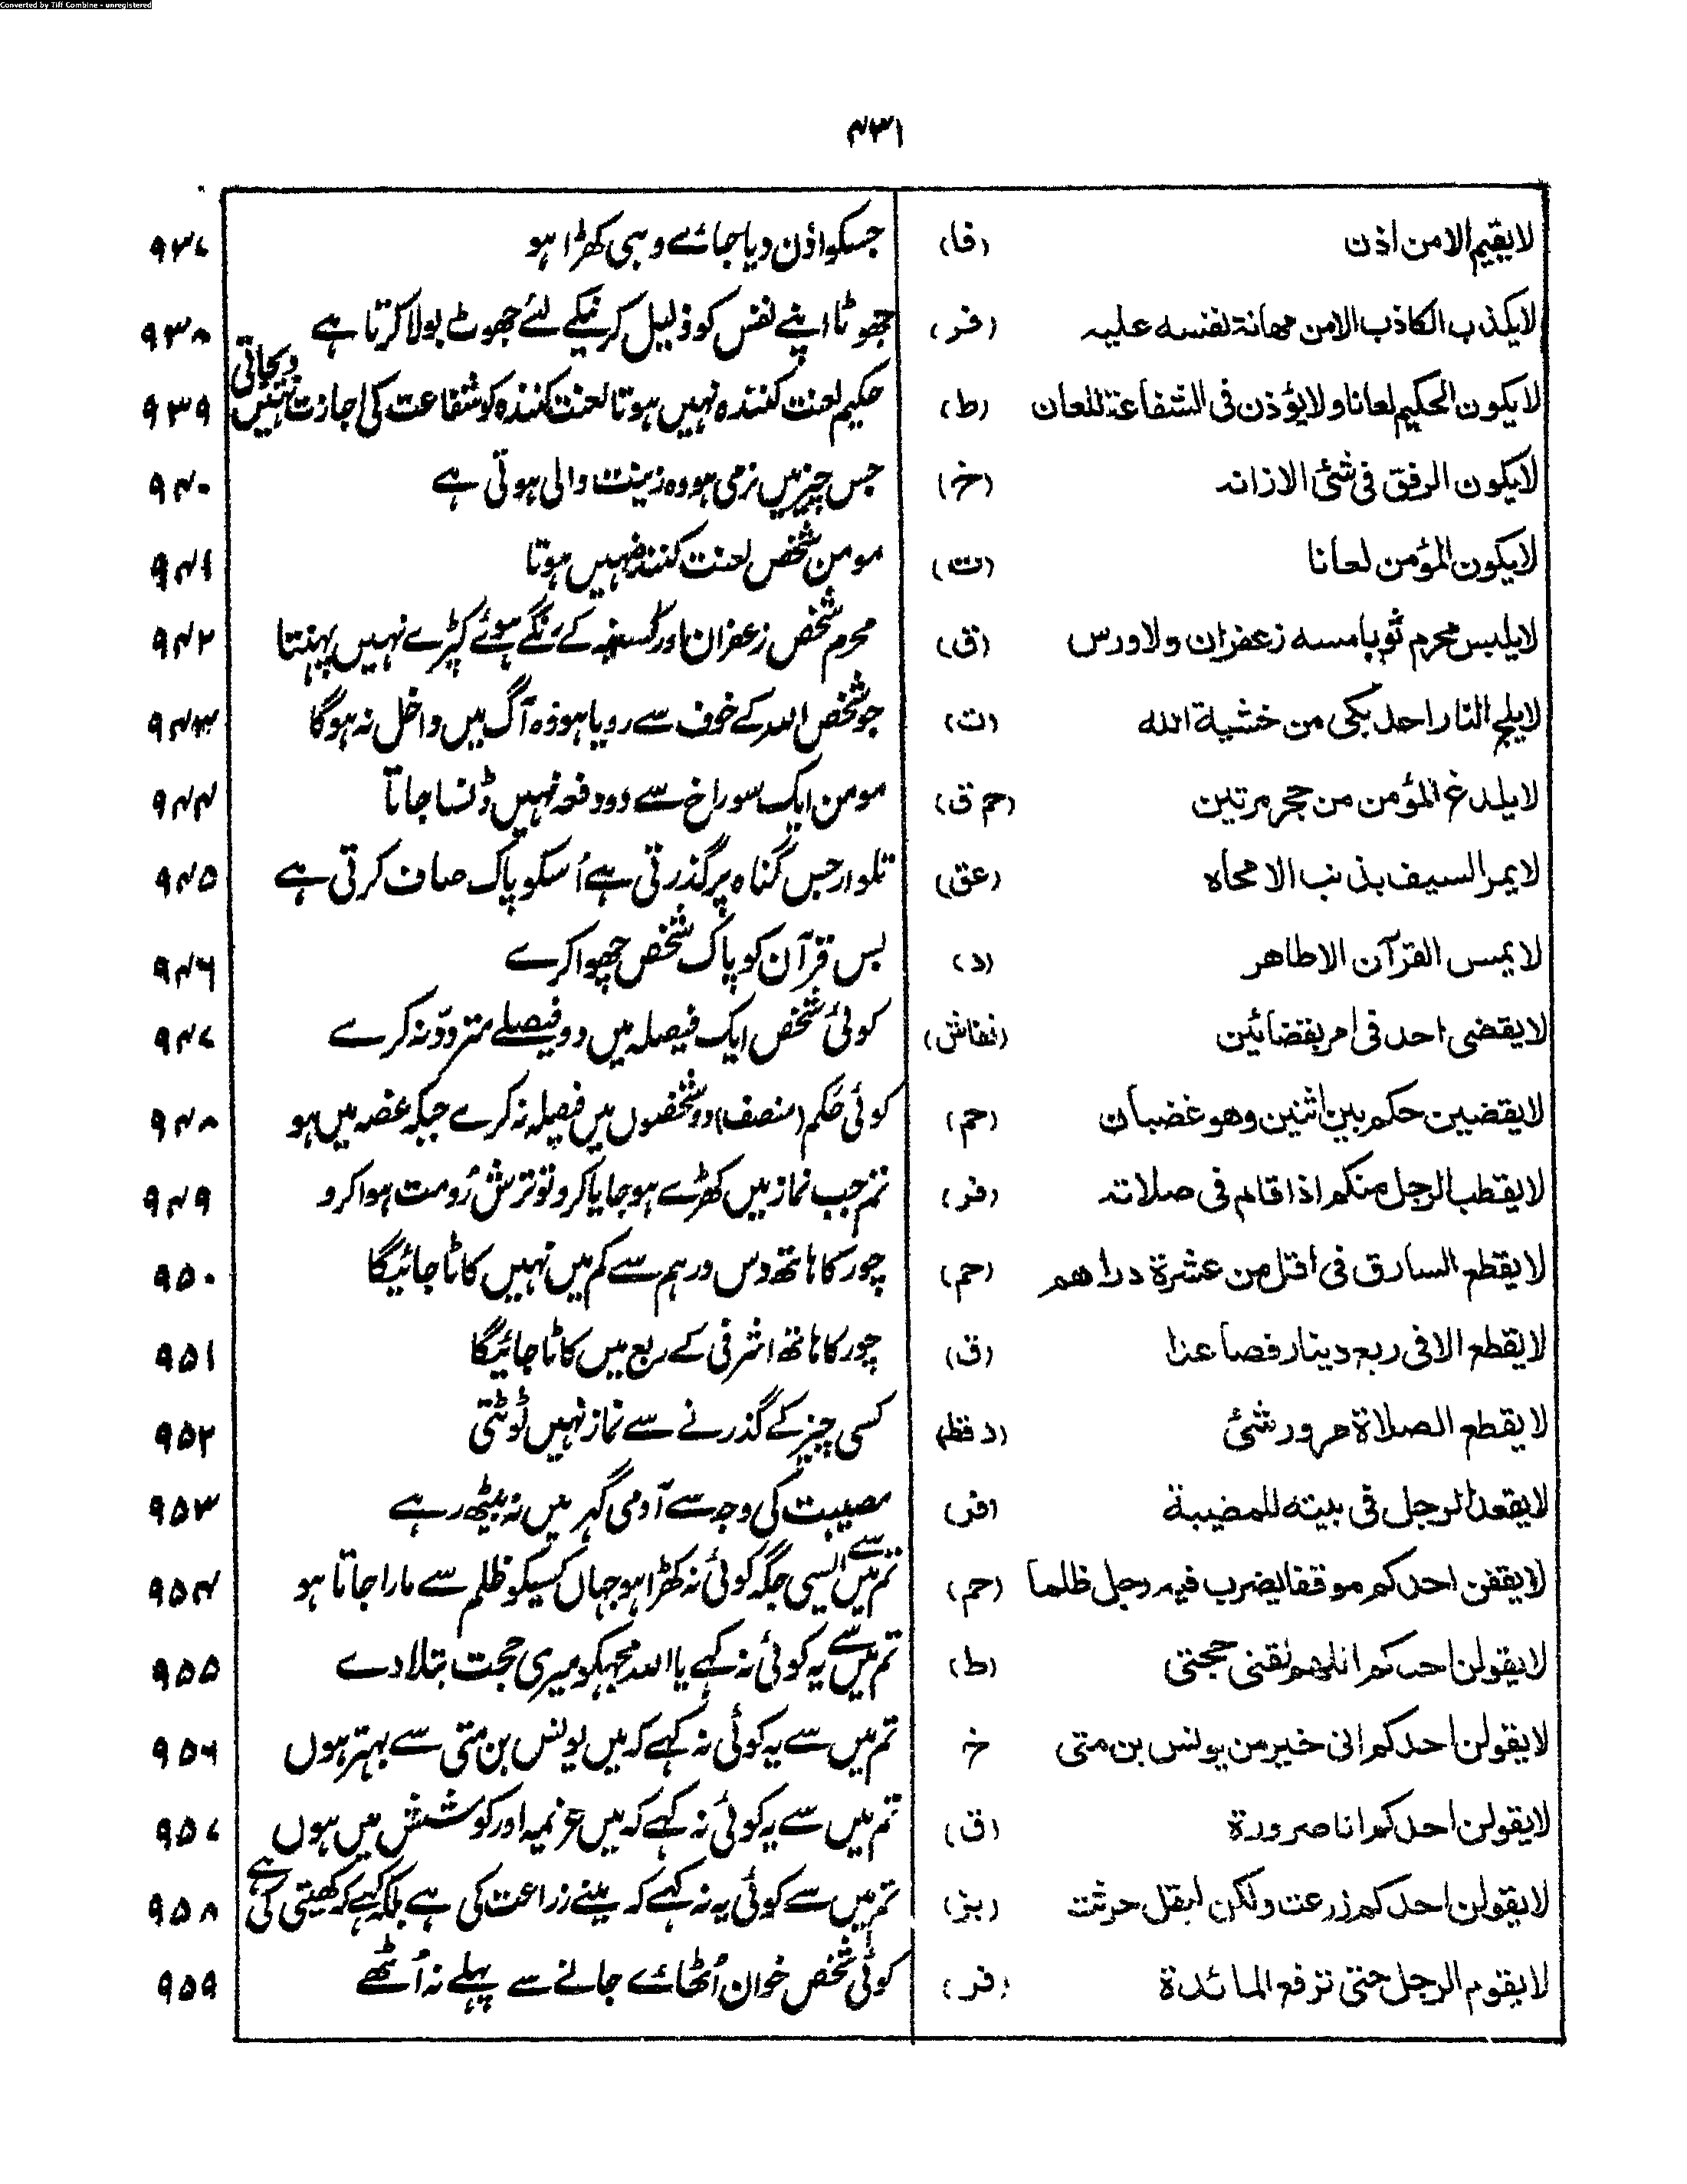 Converted by Tiff Combine - unregistered
۴۳۱
لا یقیم الا من اذن (فا) جسکو اذن دیا جائے وہی کھڑا ہو ۹۳۷
لا یکذب الکاذب الا من مهانة نفسه علیه (فر) جھوٹا اپنے نفس کو ذلیل کرنیکے لئے جھوٹ بولا کرتا ہے ۹۳۸
لا یکون الحکیم لعانا ولا یؤذن فی الشفاعة للعان (ط) حکیم لعنت کنندہ نہیں ہوتا لعنت کنندہ کو شفاعت کی اجازت نہیں دیجاتی ۹۳۹
لا یکون الرفق فی شئ الا زانه (خ) جس چیز میں نرمی ہو وہ زینت والی ہوتی ہے ۹۴۰
لا یکون المؤمن لعانا (ت) مومن شخص لعنت کنندہ نہیں ہوتا ۹۴۱
لا یلبس محرم ثوبا مسه زعفران ولا ورس (ق) محرم شخص زعفران اور کسنبہ کے رنگے ہوئے کپڑے نہیں پہنتا ۹۴۲
لا یلج النار احد بکی من خشیة الله (ت) جو شخص اللہ کے خوف سے رویا ہو وہ آگ میں داخل نہ ہوگا ۹۴۳
لا یلدغ المؤمن من حجر مرتین (حم ق) مومن ایک سوراخ سے دو دفعہ نہیں ڈسا جاتا ۹۴۴
لا یمر السیف بذنب الا محاه (عق) تلوار جس گناہ پر گذرتی ہے اُسکو پاک صاف کرتی ہے ۹۴۵
لا یمس القرآن الا طاهر (د) بس قرآن کو پاک شخص چھوا کرے ۹۴۶
لا یقضی احد فی امر بقضائین (نفاش) کوئی شخص ایک فیصلہ میں دو فیصلے متردّد نہ کرے ۹۴۷
لا یقضین حکم بین اثنین وهو غضبان (حم) کوئی حَکم (منصف) دو شخصوں میں فیصلہ نہ کرے جبکہ غصہ میں ہو ۹۴۸
لا یقطب الرجل منکم اذا قام فی صلاته (فر) تم جب نماز میں کھڑے ہو جایا کرو تو ترش رُو مت ہوا کرو ۹۴۹
لا یقطع السارق فی اقل من عشرة دراهم (حم) چور کا ہاتھ دس درہم سے کم میں نہیں کاٹا جائیگا ۹۵۰
لا یقطع الا فی ربع دینار فصاعدا (ق) چور کا ہاتھ اشرفی کے ربع میں کاٹا جائیگا ۹۵۱
لا یقطع الصلاة مرور شئ (د قط) کسی چیز کے گذرنے سے نماز نہیں ٹوٹتی ۹۵۲
لا یقعد الرجل فی بیته للمصیبة (فر) مصیبت کی وجہ سے آدمی گہر میں نہ بیٹھ رہے ۹۵۳
لا یقفن احدکم موقفا یضرب فیه رجل ظلما (حم) تم میں سے ایسی جگہ کوئی نہ کھڑا ہو جہاں کسیکو ظلم سے مارا جاتا ہو ۹۵۴
لا یقولن احدکم اللهم لقنی حجتی (ط) تم میں سے یہ کوئی نہ کہے یا اللہ مجہکو میری حجت بتلا دے ۹۵۵
لا یقولن احدکم انی خیر من یونس بن متی خ تم میں سے یہ کوئی نہ کہے کہ میں یونس بن متی سے بہتر ہوں ۹۵۶
لا یقولن احدکم انا صرورة (ق) تم میں سے یہ کوئی نہ کہے کہ میں اور کوشش میں ہوں ۹۵۷
لا یقولن احدکم زرعت ولکن لیقل حرثت (بز) تم میں سے کوئی یہ نہ کہے کہ مینے زراعت کی ہے بلکہ کہے کہ کھیتی کی ہے ۹۵۸
لا یقوم الرجل حتی ترفع المائدة (فر) کوئی شخص خوان اُٹھائے جانے سے پہلے نہ اُٹھے ۹۵۹